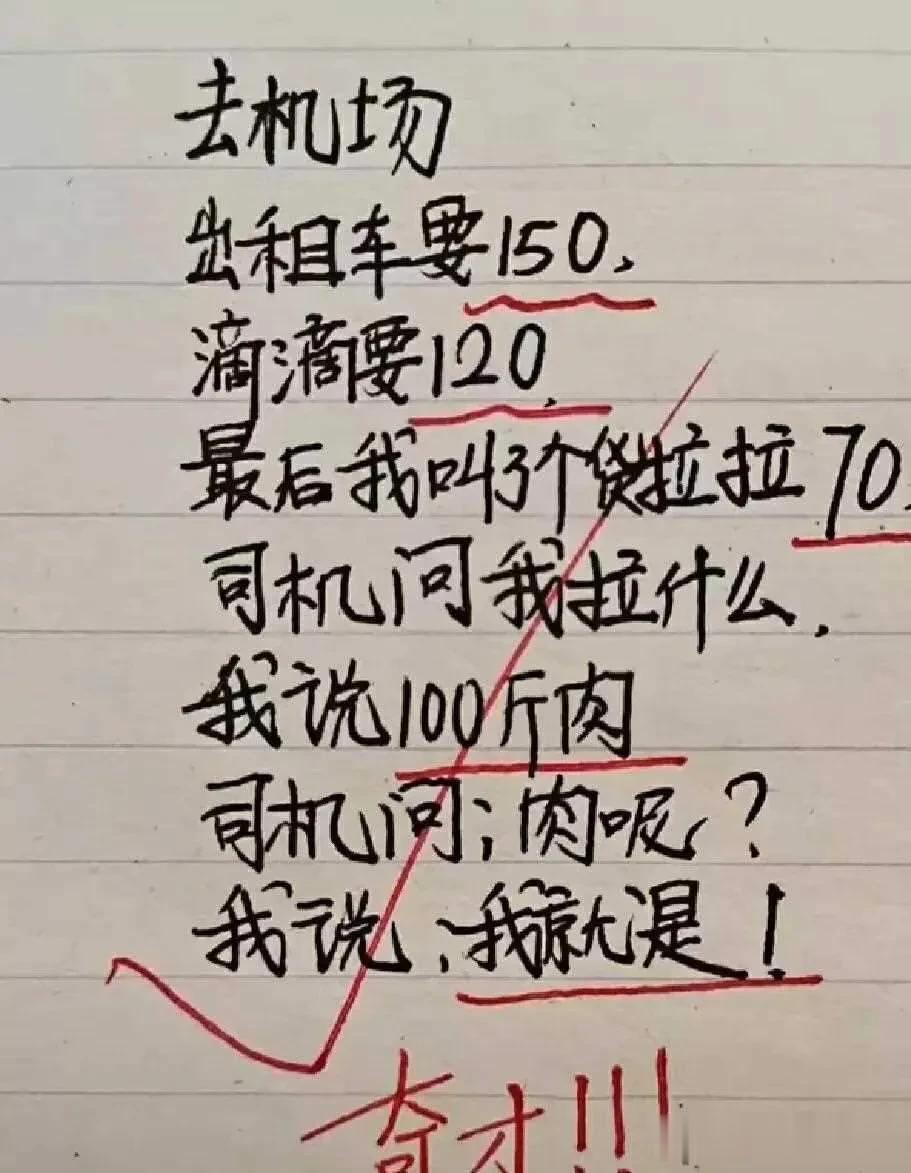 去机场
出租车要150,
滴滴要120,
最后我叫了个货拉拉70,
司机问我拉什么.
我说100斤肉
司机问;肉呢?
我说;我就是!
奇才!!!